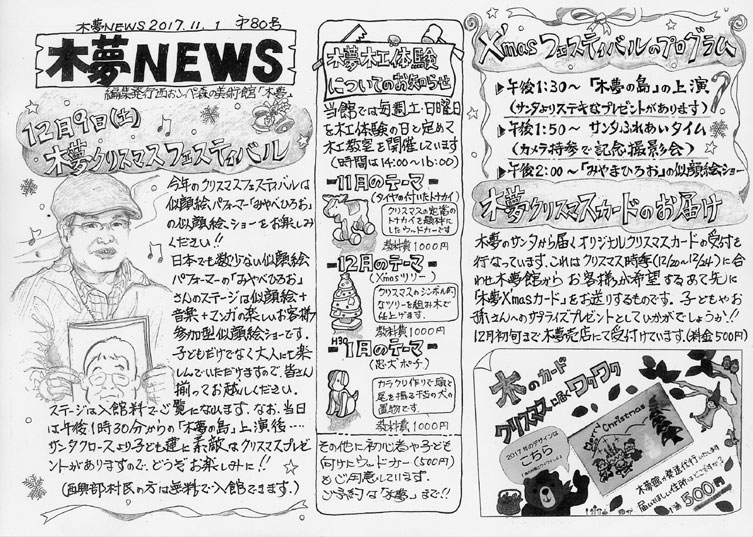 木夢NEWS 2017.11.1 第80号
木夢NEWS
編集発行 西おこっぺ森の美術館「木夢」
12月9日(土)
木夢クリスマスフェスティバル
今年のクリスマスフェスティバルは
似顔絵パフォーマー「みやべひろお」
の似顔絵ショーをお楽しみ
ください!!
日本でも数少ない似顔絵
パフォーマーの「みやべひろお」
さんのステージは似顔絵+
音楽+マンガの楽しいお客様
参加型似顔絵ショーです。
子どもだけでなく大人にも楽
しんでいただけますので、皆さん
揃ってお越しください。
ステージは入館料でご覧になれます。なお、当日
は午後1時30分からの「木夢の島」上演後‥‥
サンタクロースより子ども達に素敵なクリスマスプレゼ
ントがありますので、どうぞお楽しみに!!
(西興部村民の方は無料で入館できます。)
木夢木工体験
についてのお知らせ
当館では毎週土・日曜日
を木工体験の日と定めて
木工教室を開催しています
(時間は14:00~16:00)
11月のテーマ
(タイヤの付いたトナカイ)
クリスマスの定番の
トナカイを題材に
したウッドカーです
教材費1000円
12月のテーマ
(Xmasツリー)
クリスマスのシンボル的
なツリーを組み木で
仕上げます。
教材費1000円
H30
1月のテーマ
(忠犬ポチ)
カラクリ作りで頭と
尾を振る干支の犬の
置物です。
教材費1000円
その他に初心者や子ども
向けにウッドカー(500円)
もご用意しています。
ご予約は「木夢」まで!!
Xmasフェスティバルのプログラム
▶午後1:30~「木夢の島」の上演
(サンタよりステキなプレゼントがあります)
▶午後1:50~ サンタふれあいタイム
(カメラ持参で記念撮影会)
▶午後2:00~「みやべひろお」の似顔絵ショー
木夢クリスマスカードのお届け
木夢のサンタから届くオリジナルクリスマスカードの受付を
行なっています。これはクリスマス時季(12/20~12/24)に合
わせ木夢館からお客様が希望するあて先に
「木夢Xmasカード」をお送りするものです。子どもやお
孫さんへのサプライズプレゼントとしていかがでしょうか!!
12月初旬まで木夢売店にて受付けています。(料金500円)
木のカード
クリスマスに届くワクワク
2017年のデザインは
こちら
Merry Christmas
木夢館が発送代行いたします
届いてほしい住所はどこですか?
1通500円